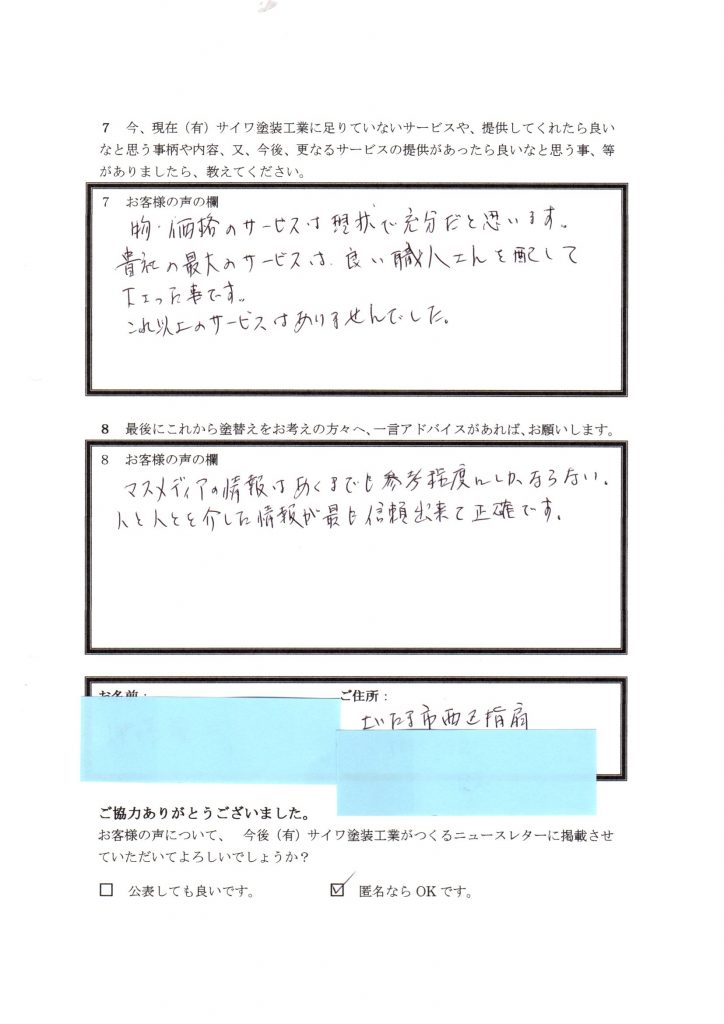 7 今、現在（有）サイワ塗装工業に足りていないサービスや、提供してくれたら良い
なと思う事柄や内容、又、今後、更なるサービスの提供があったら良いなと思う事、等
がありましたら、教えてください。
7 お客様の声の欄
物・価格のサービスは現状で充分だと思います。
貴社の最大のサービスは、良い職人さんを配して
下さった事です。
これ以上のサービスはありませんでした。
8 最後にこれから塗替えをお考えの方々へ、一言アドバイスがあれば、お願いします。
8 お客様の声の欄
マスメディアの情報はあくまでも参考程度にしかならない。
人と人とを介した情報が最も信頼出来て正確です。
お名前： ご住所：
さいたま市西区指扇
ご協力ありがとうございました。
お客様の声について、 今後（有）サイワ塗装工業がつくるニュースレターに掲載させ
ていただいてよろしいでしょうか？
□ 公表しても良いです。 ☑ 匿名なら OK です。